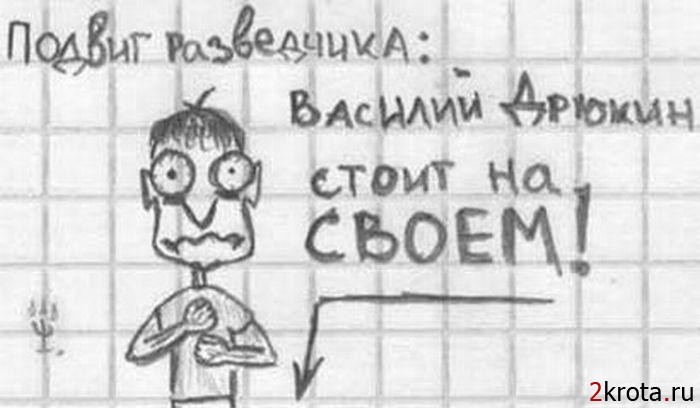 Подвиг разведчика:
Василий Дрюкин
стоит на
СВОЕМ!
2krota.ru